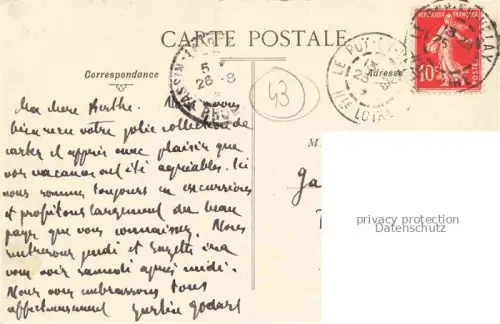 CARTE POSTALE
Correspondance
Adresse
LE PUY-EN-VELAY
26-8
HTE LOIRE
REPUBLIQUE FRANÇAISE
10c
5
26-8
43
M.
Ma chère Berthe. Nous avons
bien reçu votre jolie collection de
cartes et appris avec plaisir que
vos vacances ont été agréables. Ici
nous sommes toujours en excursions
et profitons largement du beau
pays que vous connaissez. Nous
rentrerons jeudi et ira
vous voir samedi après midi.
Nous vous embrassons tous
affectueusement Godart
Ga
privacy protection
Datenschutz